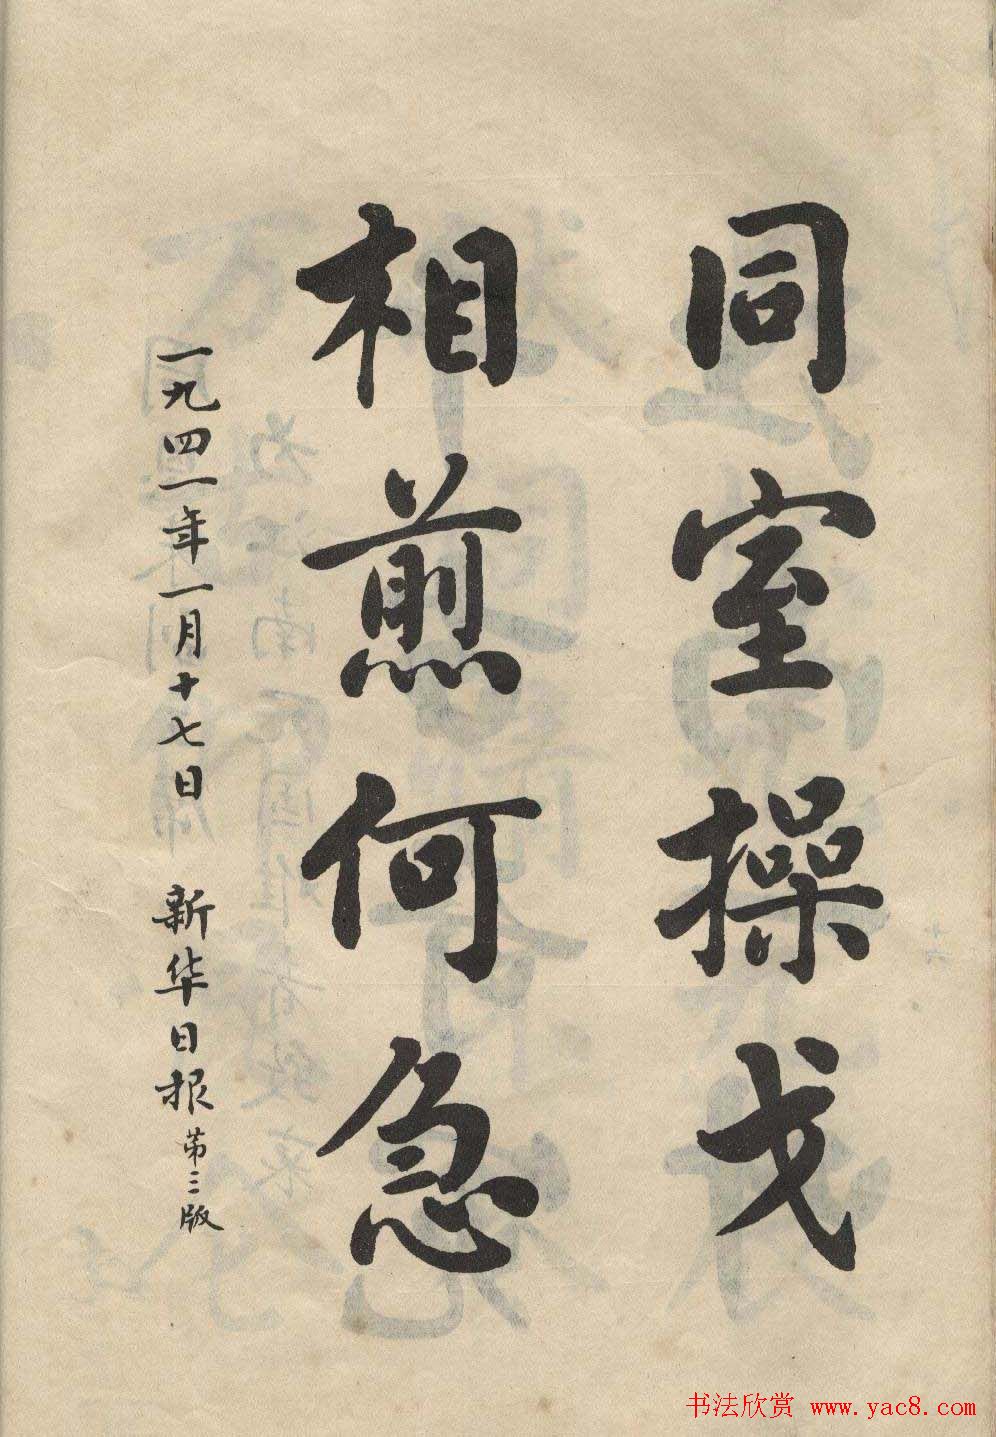 同室操戈
相煎何急
一九四一年一月十七日 新华日报第三版
十六
书法欣赏 www.yac8.com